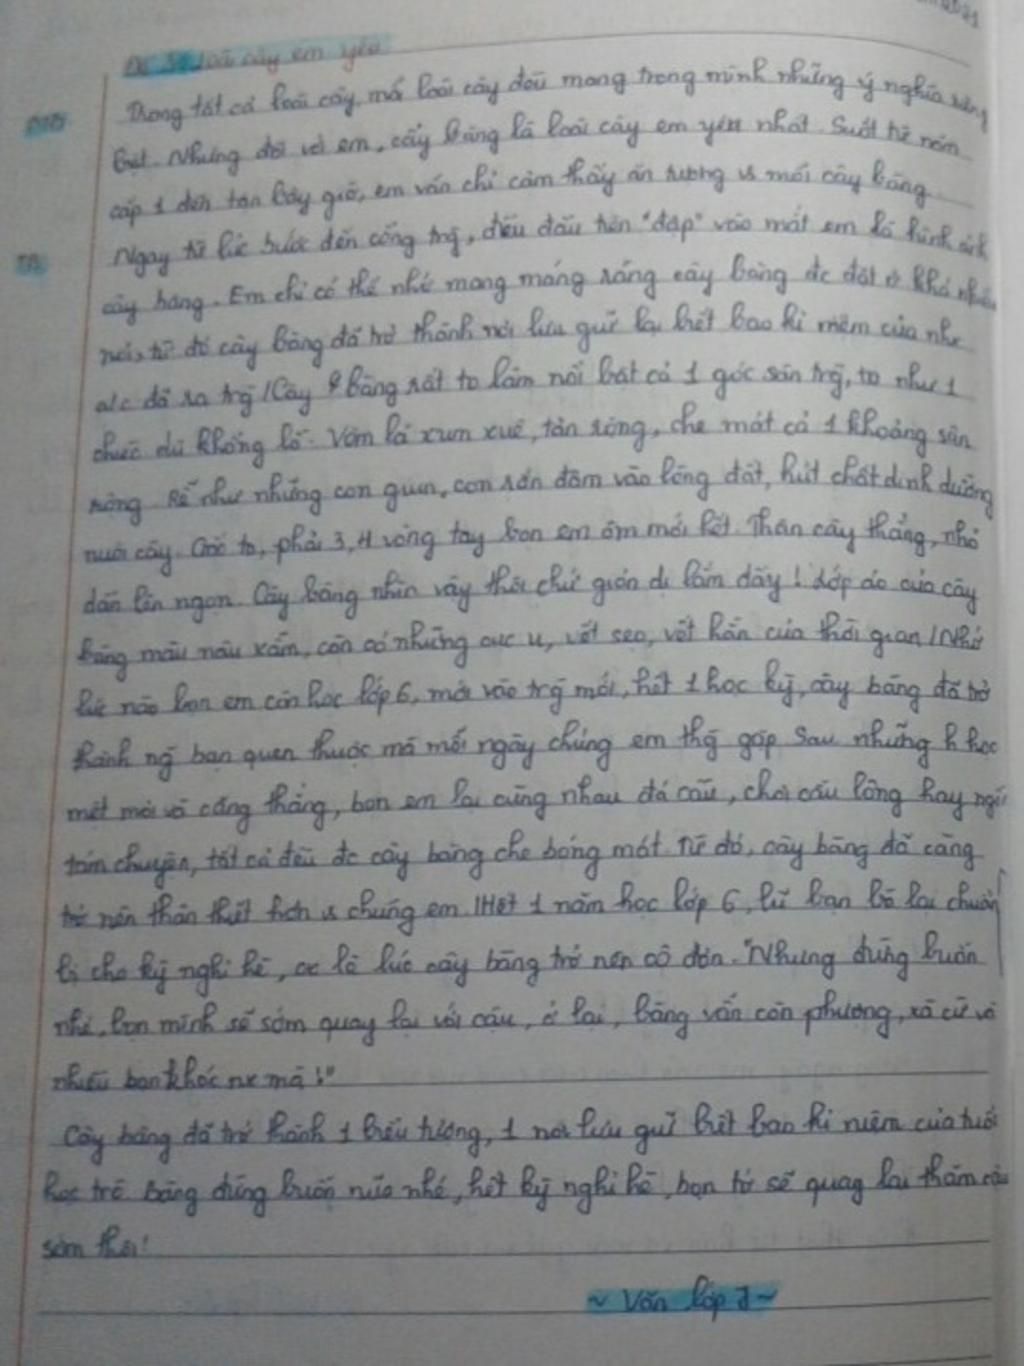 Đề 3: Loài cây em yêu
MB
Trong tất cả loài cây, mỗi loài cây đều mang trong mình những ý nghĩa riêng
biệt. Nhưng đối với em, cây bàng là loài cây em yêu nhất. Suốt từ năm
cấp 1 đến tận bây giờ, em vẫn chỉ cảm thấy ấn tượng vs mỗi cây bàng.
TB
Ngay từ lúc bước đến cổng trg, điều đầu tiên "đập" vào mắt em là hình ảnh
cây bàng. Em chỉ có thể nhớ mang máng rằng cây bàng đc đặt ở khá nhiều
nơi, từ đó cây bàng đã trở thành nơi lưu giữ lại biết bao kỉ niệm của nhx
a/c đã ra trg / Cây bàng rất to làm nổi bật cả 1 góc sân trg, to như 1
chiếc dù khổng lồ. Vòm lá xum xuê, tản rộng, che mát cả 1 khoảng sân
rộng. Rễ như những con giun, con rắn đâm vào lòng đất, hút chất dinh dưỡng
nuôi cây. Gốc to, phải 3, 4 vòng tay bọn em ôm mới hết. Thân cây thẳng, nhỏ
dần lên ngọn. Cây bàng nhìn vậy thôi chứ giản dị lắm đấy! Lớp áo của cây
bàng màu nâu xẫm, còn có những cục u, vết sẹo, vết hằn của thời gian / Nhớ
lúc nào bọn em còn học lớp 6, mới vào trg mới, hết 1 học kỳ, cây bàng đã trở
thành ng bạn quen thuộc mà mỗi ngày chúng em thg gặp. Sau những h học
mệt mỏi và căng thẳng, bọn em lại cùng nhau đá cầu, chơi cầu lông hay ngồi
tám chuyện, tất cả đều đc cây bàng che bóng mát. Từ đó, cây bàng đã càng
trở nên thân thiết hơn vs chúng em. / Hết 1 năm học lớp 6, lũ bạn lại chuẩn
bị cho kỳ nghỉ hè, là lúc cây bàng trở nên cô đơn. "Nhưng đừng buồn
nhé, bọn mình sẽ sớm quay lại với cậu, ở lại, bàng vẫn còn phượng, xà cừ và
nhiều bạn khác nx mà!"
Cây bàng đã trở thành 1 biểu tượng, 1 nơi lưu giữ biết bao kỉ niệm của tuổi
học trò. Bàng đừng buồn nữa nhé, hết kỳ nghỉ hè, bọn tớ sẽ quay lại thăm cậu
sớm thôi!
~ Văn lớp 7 ~